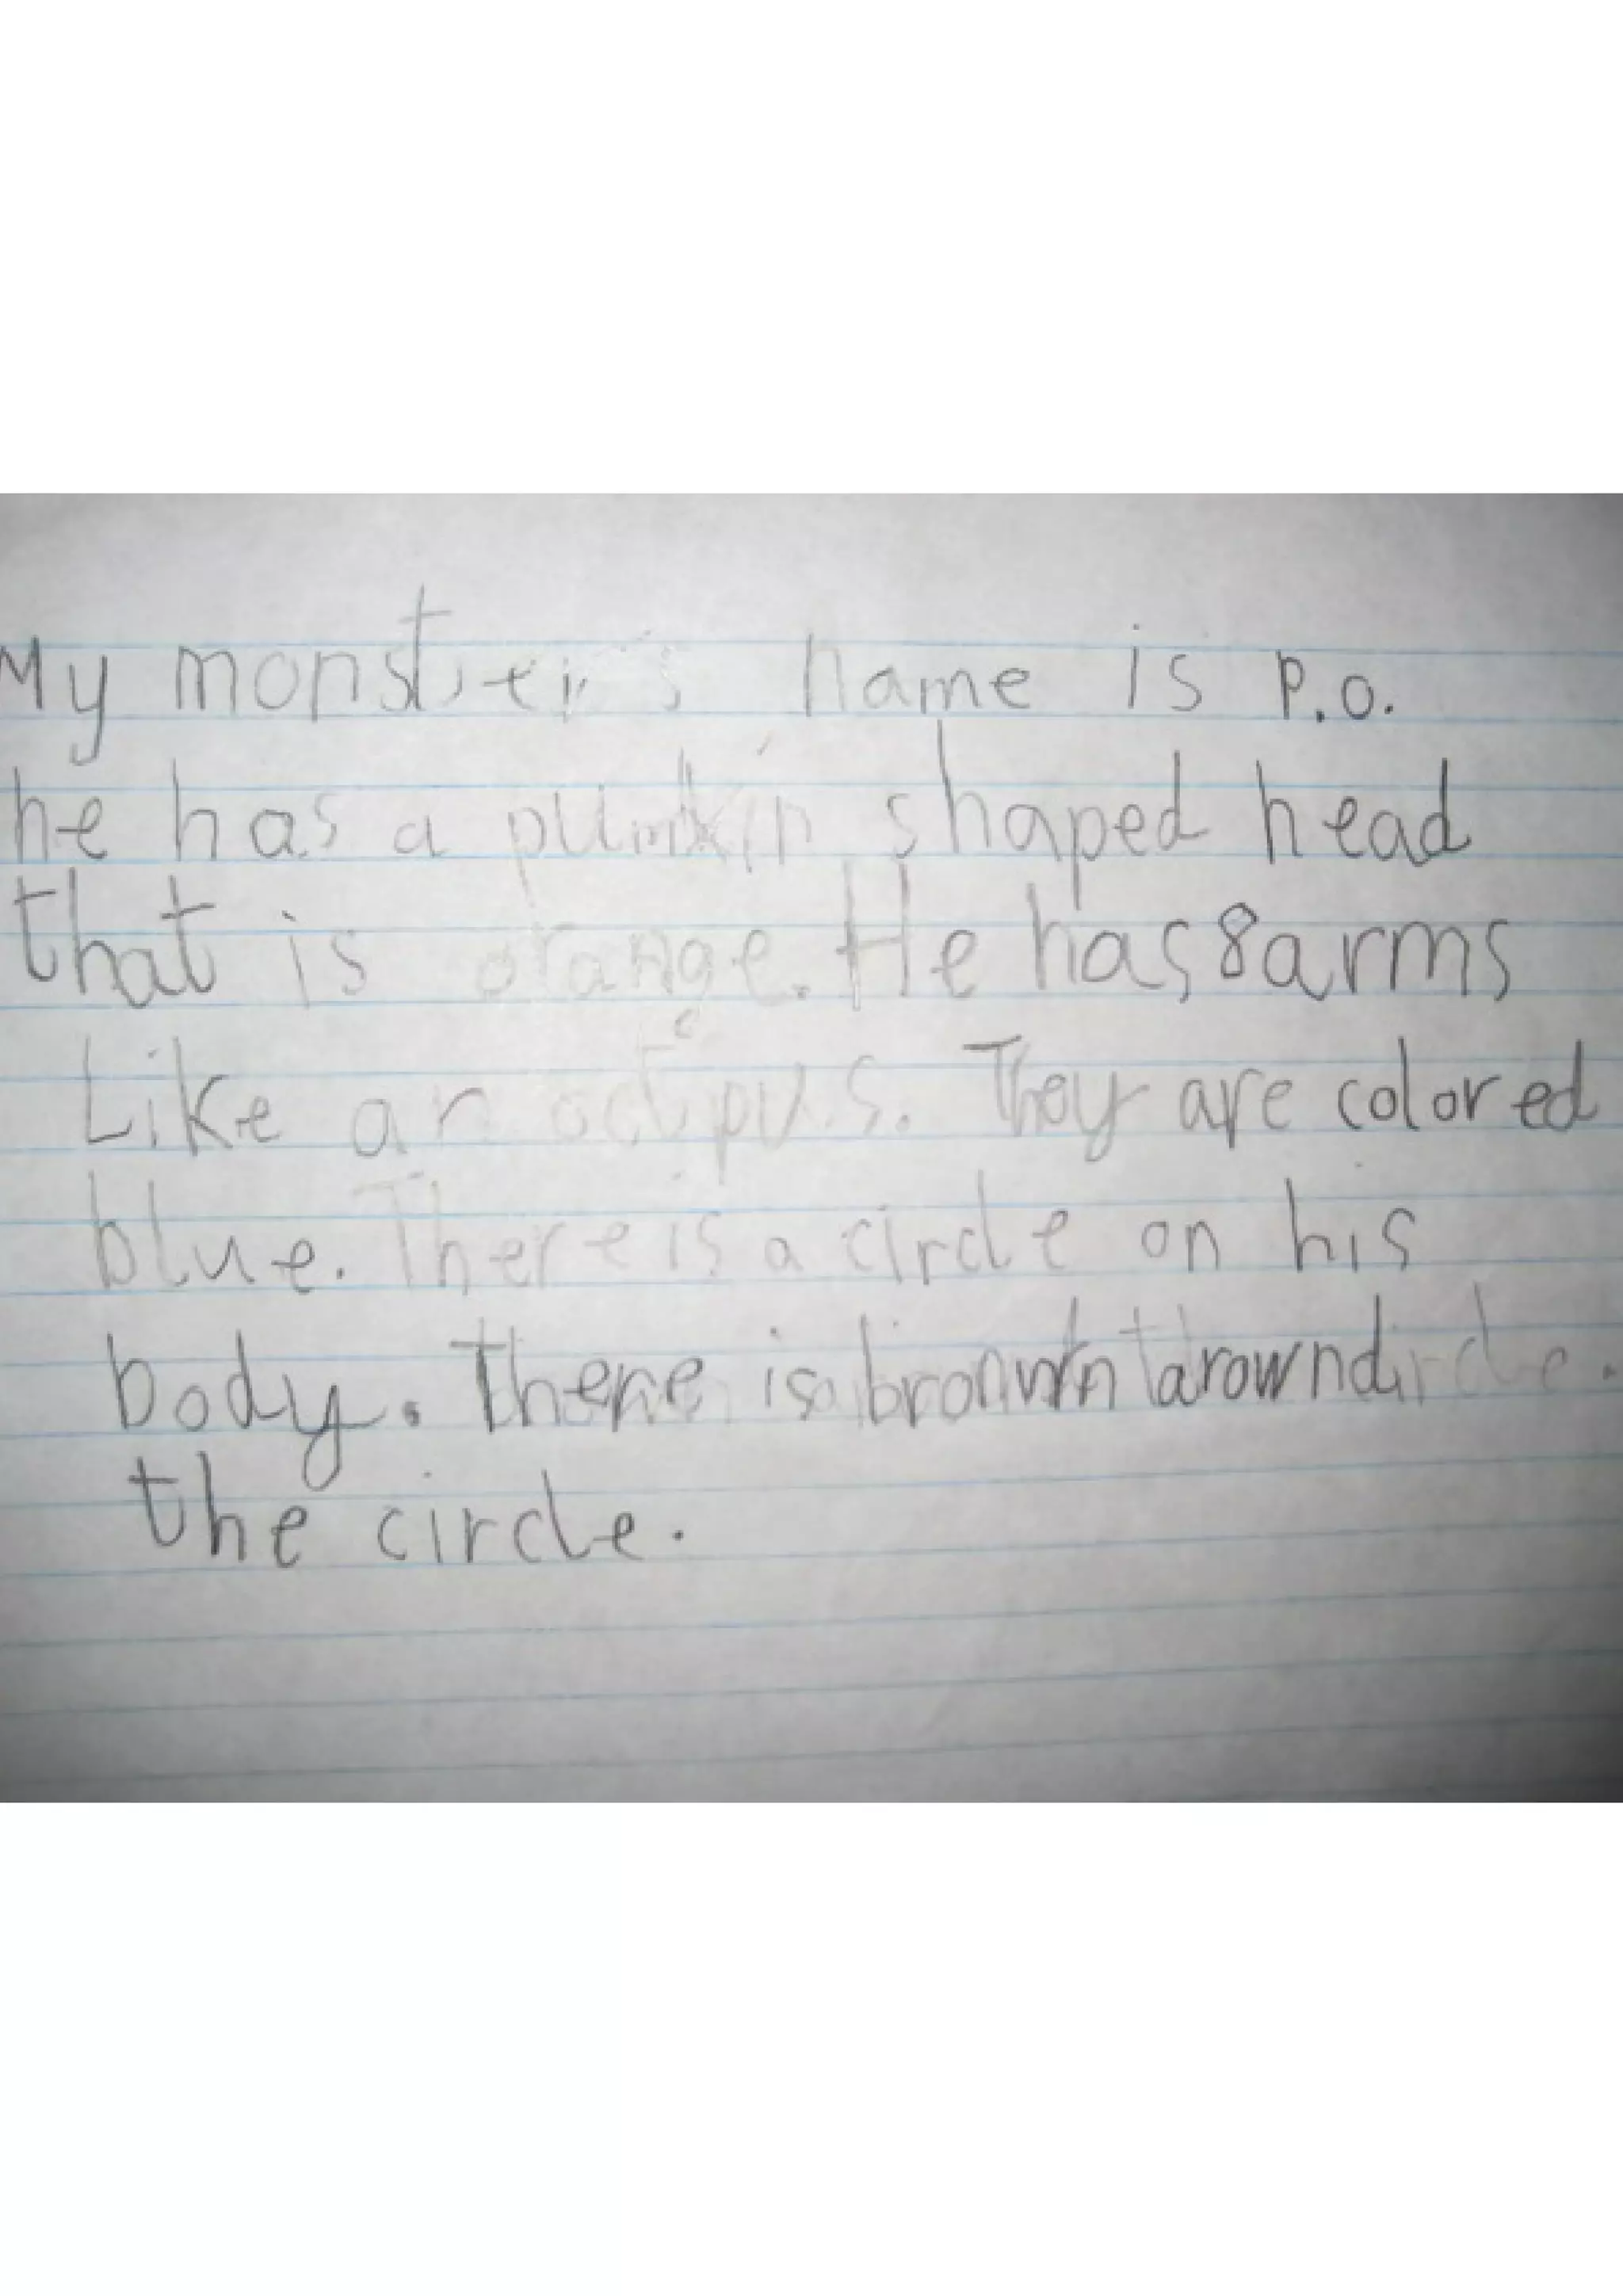 My monster's name is P.O.
he has a pumkin shaped head
that is orange. He has 8 arms
Like an octipus. They are colored
blue. There is a circle on his
body. There is brown arownd
the circle.